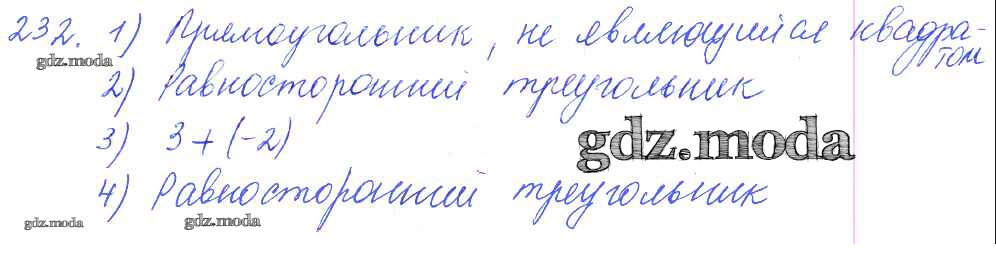 232. 1) Прямоугольник, не являющийся квадра-
том
gdz.moda
2) Равносторонний треугольник
3) 3+(-2)
gdz.moda
4) Равносторонний треугольник
gdz.moda
gdz.moda